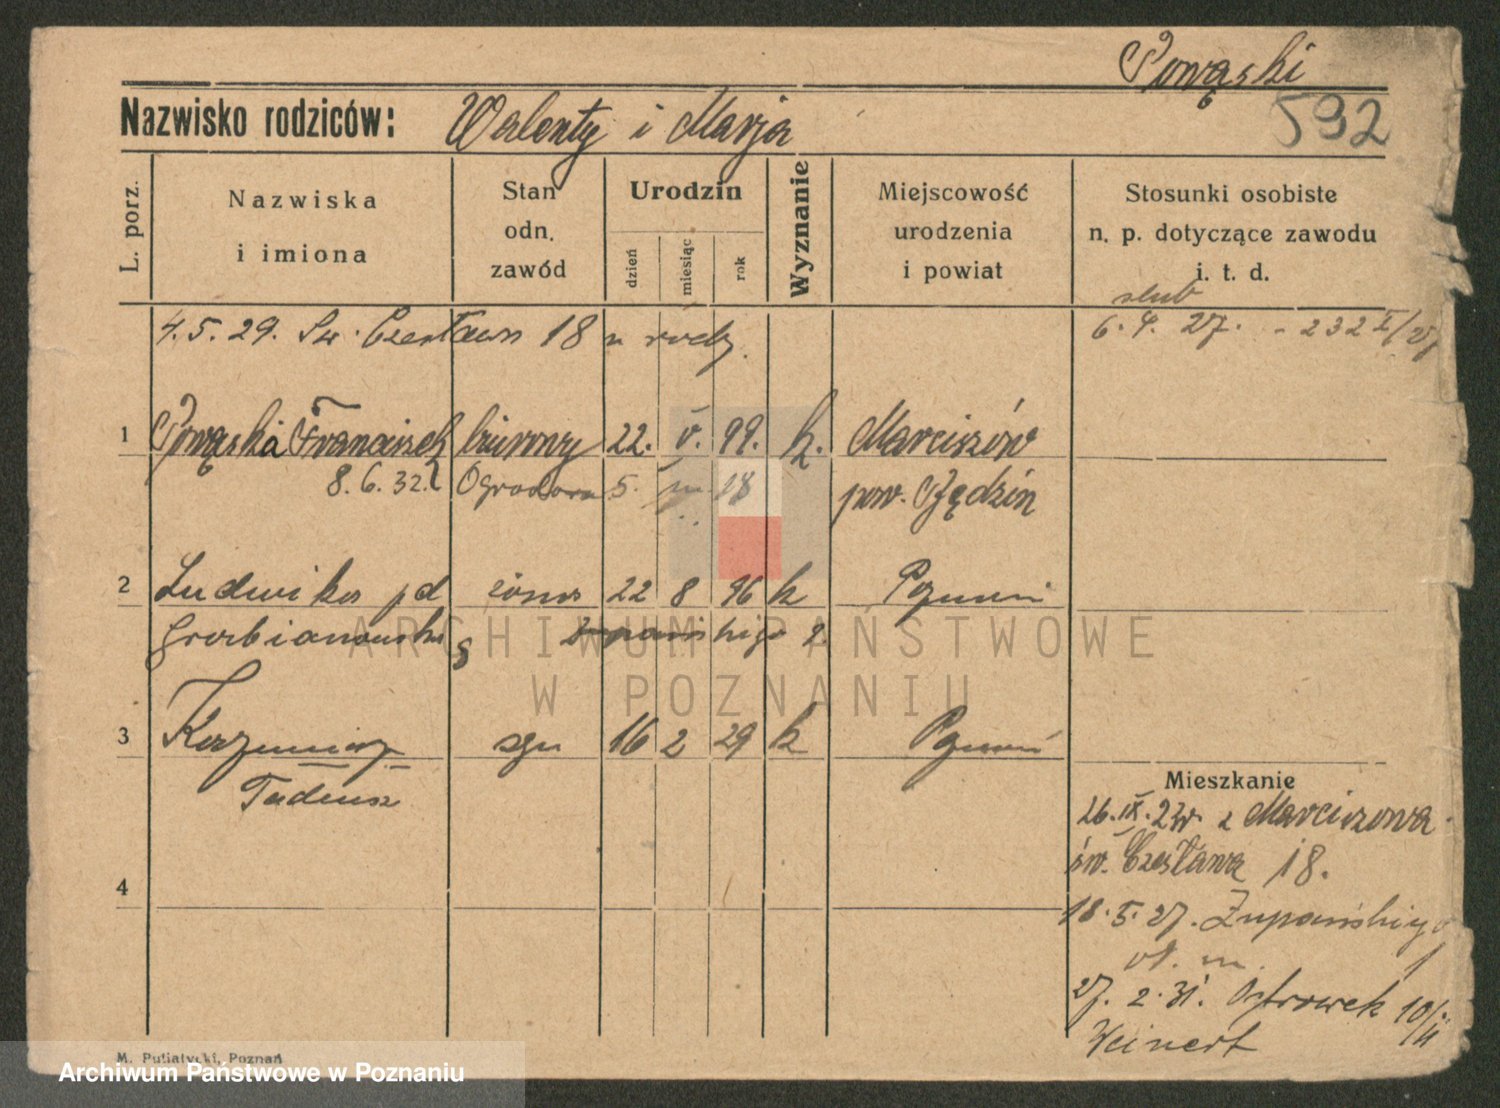 Powąski
592
Nazwisko rodziców: Walenty i Marja
L. porz.
Nazwiska i imiona
Stan odn. zawód
Urodzin
dzień
miesiąc
rok
Wyznanie
Miejscowość urodzenia i powiat
Stosunki osobiste n. p. dotyczące zawodu i. t. d.
ślub
4.5.29. Św. Czesława 18 u rodz. 6.4.27. - 232 I/27
1 Powąski Franciszek biurowy 22. V. 99. k. Marciszów
8.6.32. Ogrodowa 5. m. 18 pow. Będzin
2 Ludwika pd żona 22 8 96 k Poznań
Grabianowska Żupańskiego 2.
3 Kazimierz syn 16 2 29 k Poznań
Tadeusz
4
Mieszkanie
26.IX.22r. z Marciszowa
św. Czesława 18.
18.5.27. Żupańskiego
27.2.31. Ostrowek 10/11
Weinert
M. Putiatycki, Poznań
ARCHIWUM PAŃSTWOWE
W POZNANIU
Archiwum Państwowe w Poznaniu